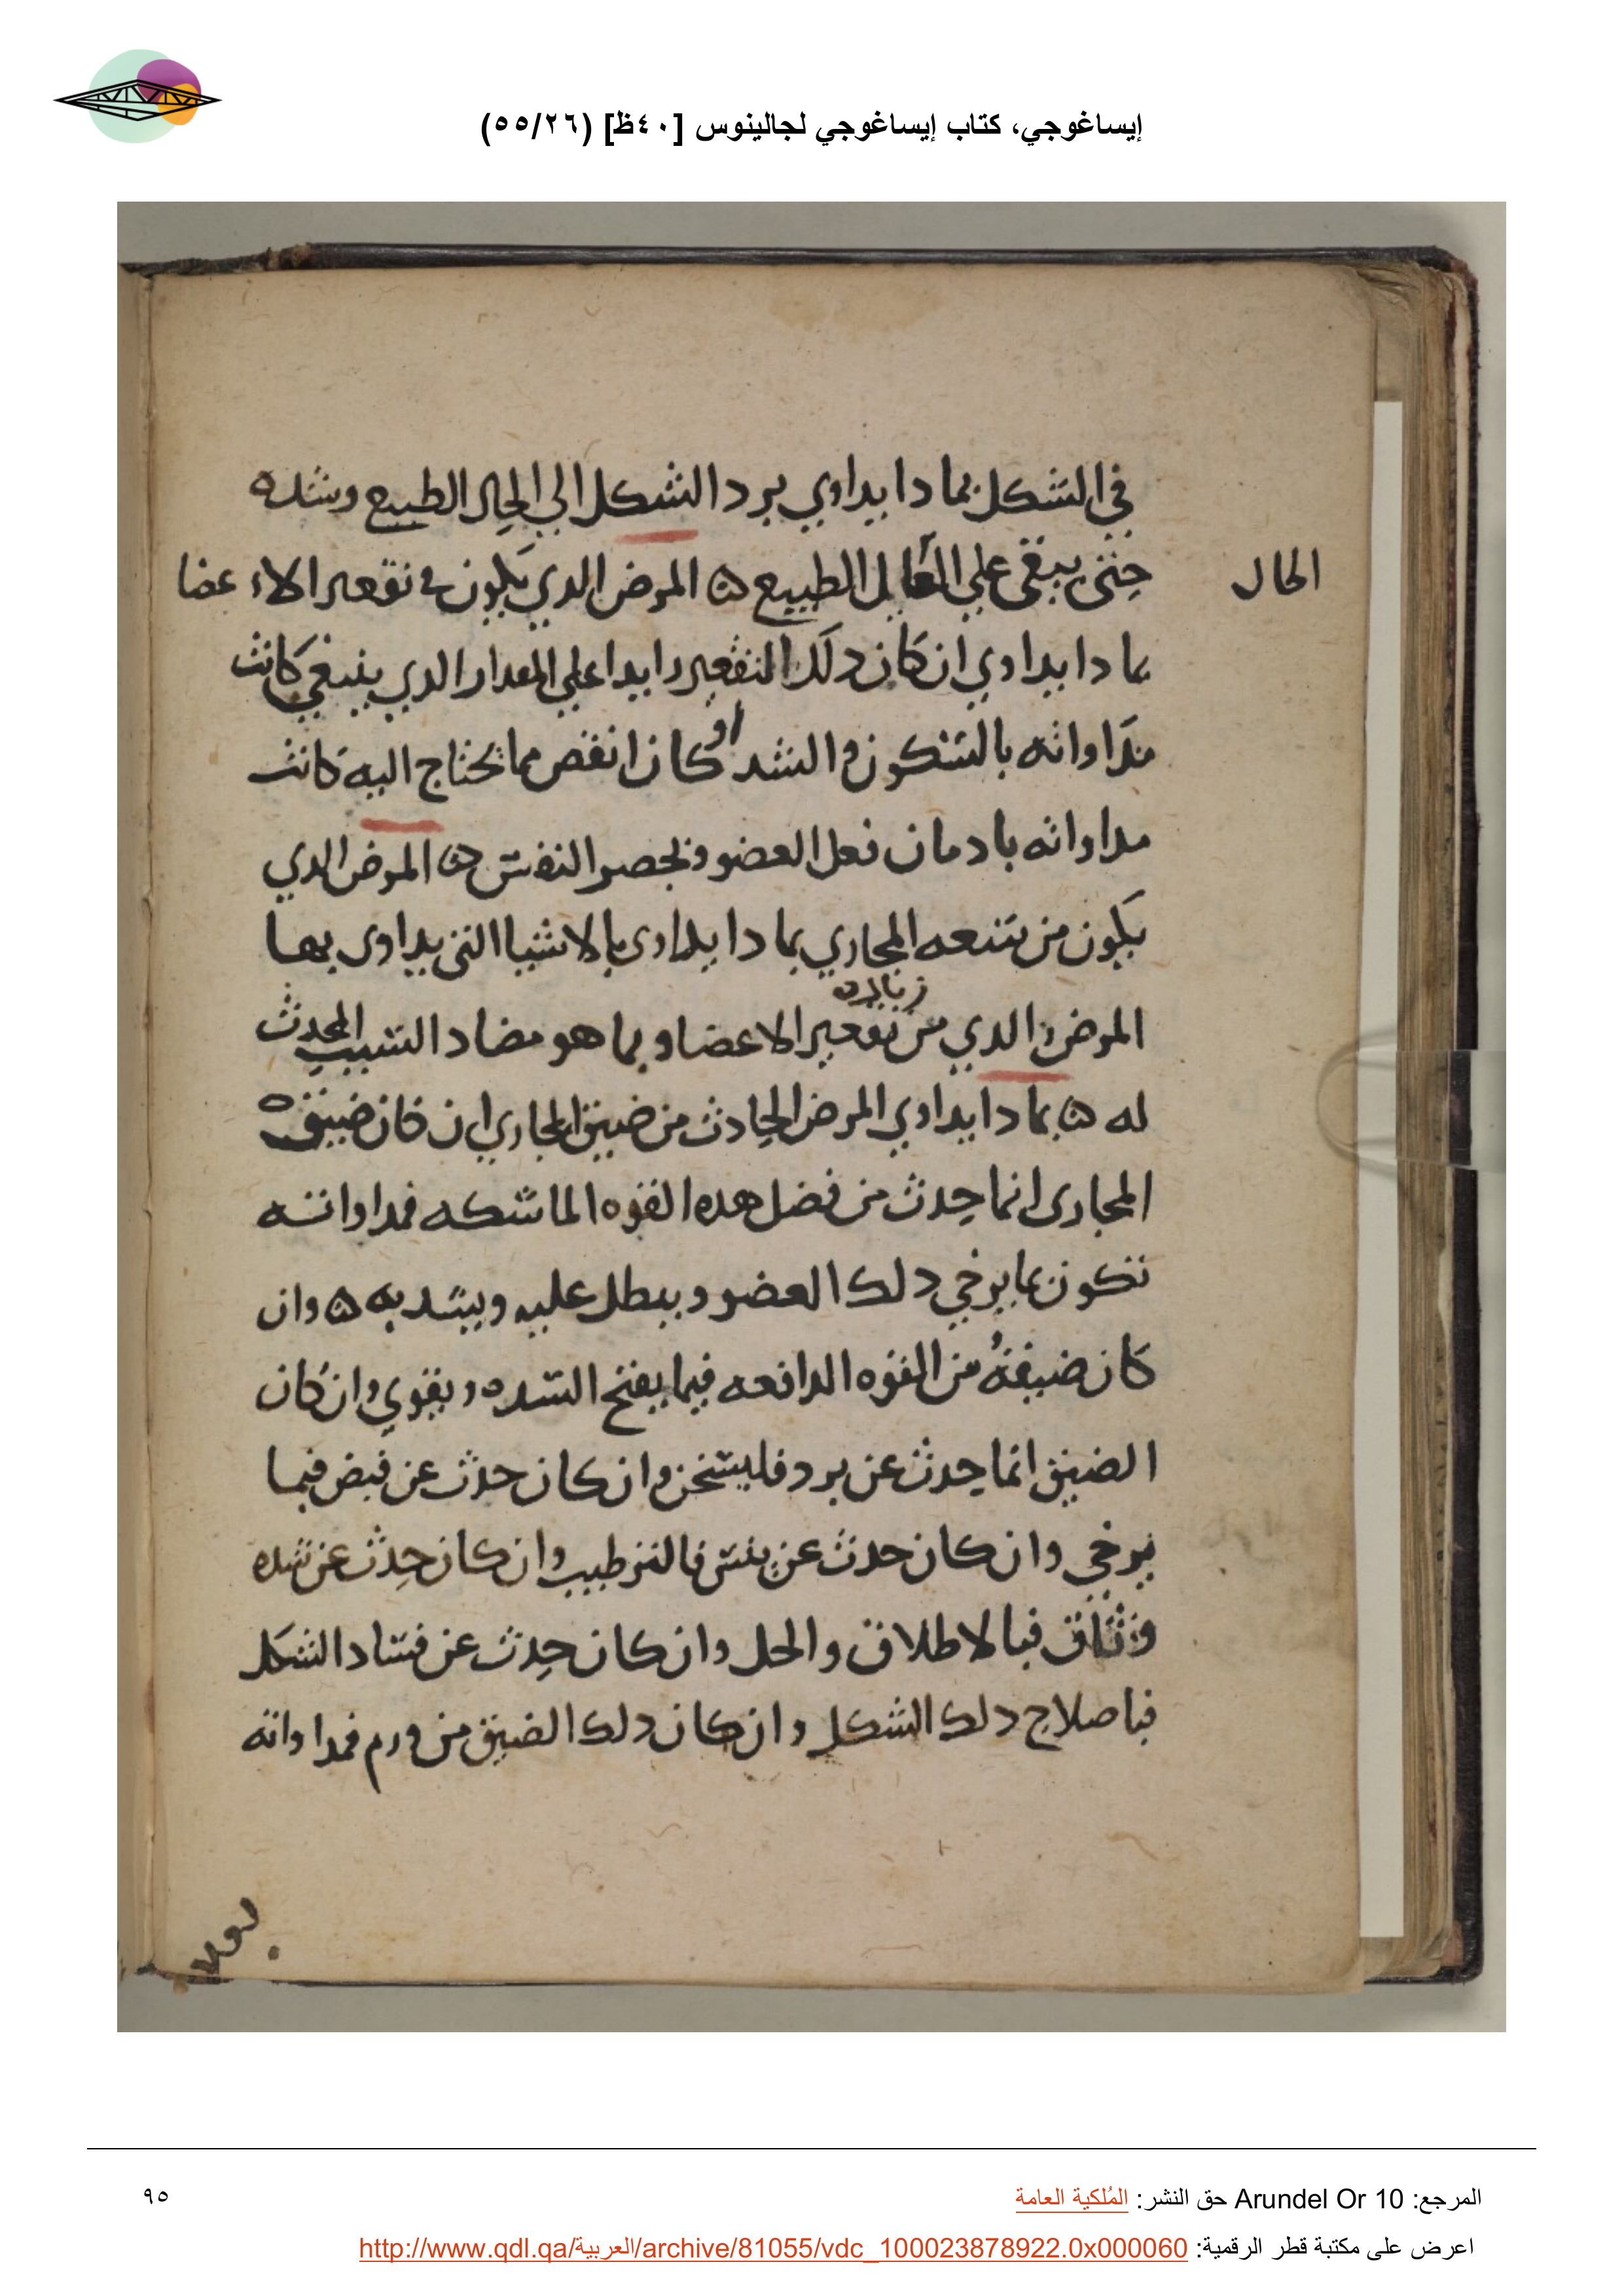 إيساغوجي، كتاب إيساغوجي لجالينوس [٤٠ظ] (٥٥/٢٦)
في الشكل بما دا يداوي برد الشكل الي الحال الطبيع وشده
حتى يبقى علي الحال الطبيع ه المرض الدي يكون في تقعير الاعضا
الحال
بما دا يداوي ان كان دلك التقعير زايدا علي المقدار الدي ينبغي كانت
مداواته بالسكون والشد او كان انقص مما يحتاج اليه كانت
مداواته بادمان فعل العضو وبحصر النفس ه المرض الدي
يكون من سعه المجاري بما دا يداوى بالاشيا التي يداوى بها
المرض الدي من زياده تقعير الاعضا وبما هو مضاد السبب المحدث
له ه بما دا يداوي المرض الحادث من ضيق المجاري ان كان ضيق
المجارى انما حدث من فضل هده القوه الماسكه فمداواته
تكون بما يرخي دلك العضو ويبطل عليه ويشد به ه وان
كان ضيقه من القوه الدافعه فبما يفتح السده ويقوي وان كان
الضيق انما حدث عن برد فليسخن وان كان حدث عن قبض فبما
يرخي وان كان حدث عن يبس فالترطيب وان كان حدث عن شده
وثاق فبالاطلاق والحل وان كان حدث عن فساد الشكل
فباصلاح دلك الشكل وان كان دلك الضيق من ورم فمداواته
المرجع: Arundel Or 10 حق النشر: المُلكية العامة
٩٥
اعرض على مكتبة قطر الرقمية: http://www.qdl.qa/العربية/archive/81055/vdc_100023878922.0x000060